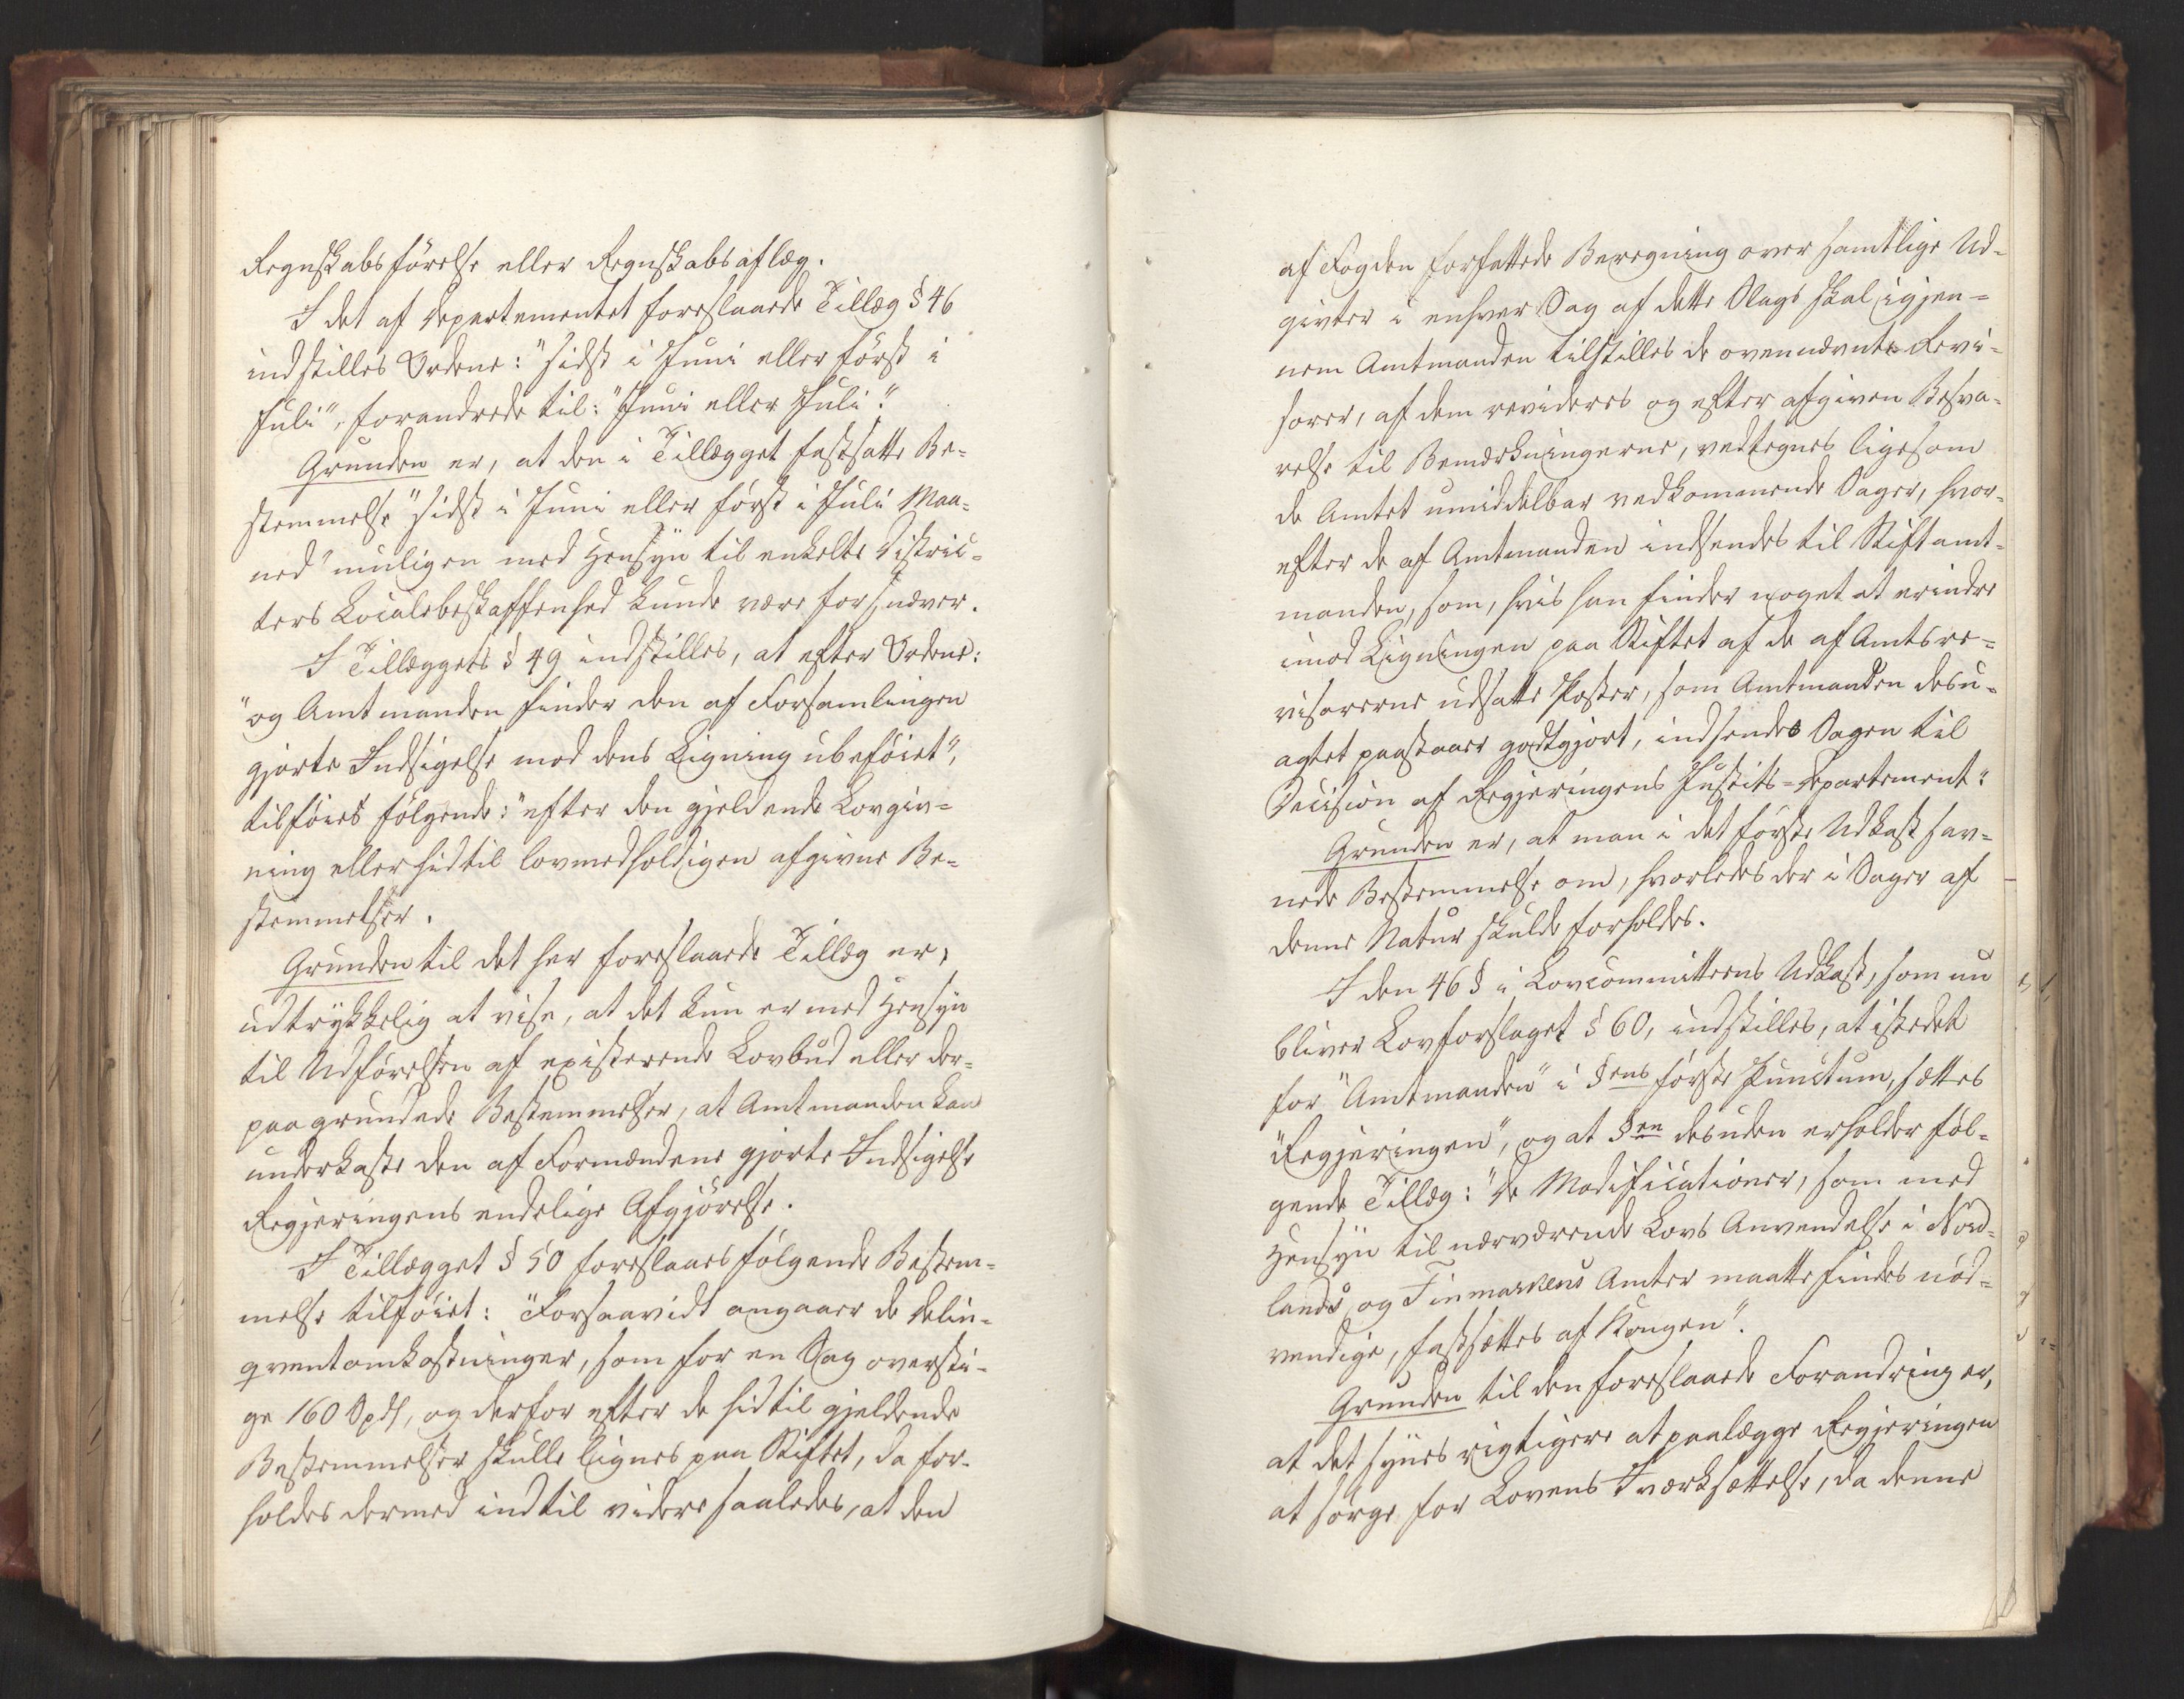 Regnskabsförelse eller Regnskabsaflæg.
I det af Departementet foreslaaede Tillæg § 46
indstilles Ordene: "sidst i Juni eller först i
Juli", forandrede til: "Juni eller Juli".
Grunden er, at den i Tillægget fastsatte Be-
stemmelse "sidst i Juni eller först i Juli Maa-
ned" muligen med Hensyn til enkelte Distric-
ters Localebeskaffenhed kunde være for snæver.
I Tillæggets § 49 indstilles, at efter Ordene:
"og Amtmanden finder den af Forsamlingen
gjorte Indsigelse mod dens Ligning ubeföiet",
tilföies fölgende: "efter den gjeldende Lovgiv-
ning eller hidtil lovmedholdigen afgivne Be-
stemmelser.
Grunden til det her foreslaaede Tillæg er,
udtrykkelig at vise, at det kun er med Hensyn
til Udförelsen af existerende Lovbud eller der-
paa grundede Bestemmelser, at Amtmanden kan
underkaste den af Formændene gjorte Indsigelse
Regjeringens endelige Afgjörelse.
I Tillægget § 50 foreslaaes fölgende Bestem-
melse tilföiet: "Forsaavidt angaaer de Delin-
qventomkostninger, som for en Sag oversti-
ge 160 Spd, og derfor efter de hidtil gjeldende
Bestemmelser skulle lignes paa Stiftet, da for-
holdes dermed indtil videre saaledes, at den
af Fogden forfattede Beregning over samtlige Ud-
givter i enhver Sag af dette Slags skal igjen-
nem Amtmanden tilstilles de ovennævnte Revi-
sorer, af dem revideres og efter afgiven Besva-
relse til Bemærkningerne, vedtegnes ligesom
de Amtet umiddelbar vedkommende Sager, hvor-
efter de af Amtmanden indsendes til Stiftamt-
manden, som, hvis han finder noget at erindre
imod Ligningen paa Stiftet af de af Amtsre-
visorerne udsatte Poster, som Amtmanden desu-
agtet paastaaer godtgjort, indsendes Sagen til
Decision af Regjeringens Justits-Departement".
Grunden er, at man i det förste Udkast sav-
nede Bestemmelse om, hvorledes der i Sager af
denne Natur skulde forholdes.
I den 46 § i Lovcommitteens Udkast, som nu
bliver Lovforslaget § 60, indstilles, at istedet
for "Amtmanden" i §ens förste Punctum, sættes
"Regjeringen", og at §en desuden erholder föl-
gende Tillæg: "De Modificationer, som med
Hensyn til nærværende Lovs Anvendelse i Nord-
lands og Finmarkens Amter maatte findes nöd-
vendige, fastsættes af Kongen".
Grunden til den foreslaaede Forandring er,
at det synes rigtigere at paalægge Regjeringen
at sörge for Lovens Iværksættelse, da denne